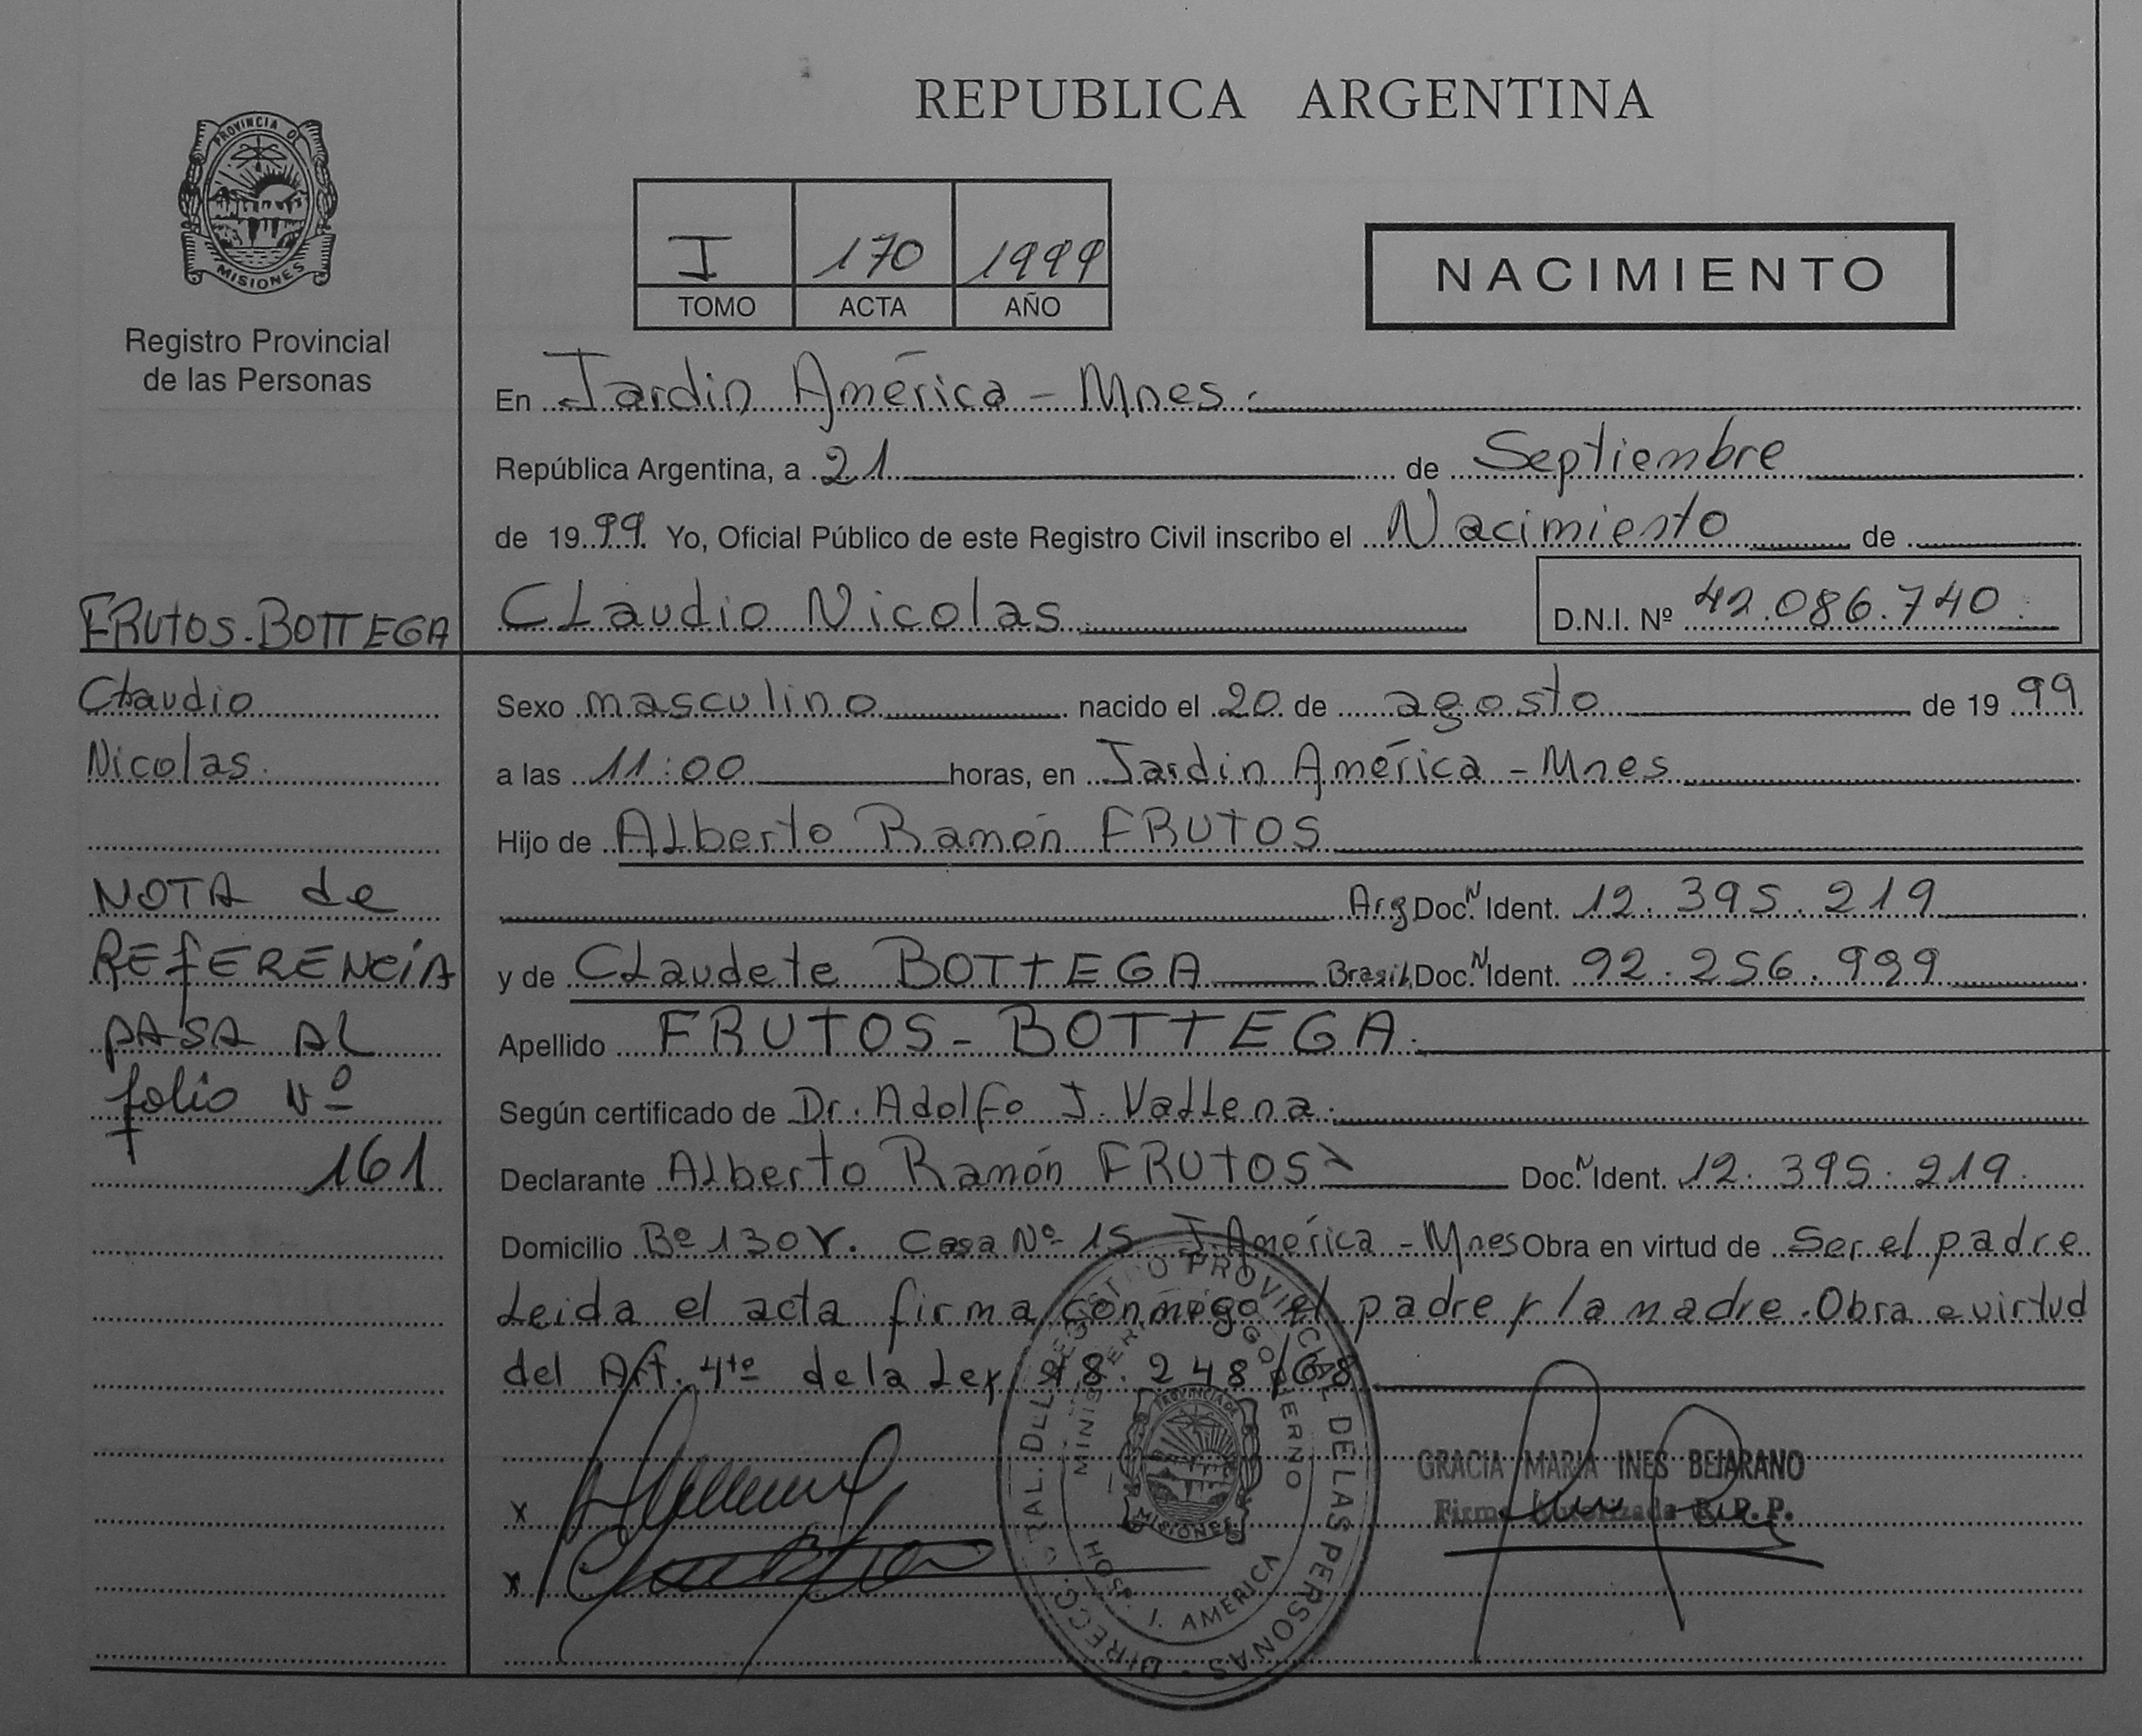 REPUBLICA ARGENTINA
PROVINCIA DE
MISIONES
Registro Provincial
de las Personas
I 170 1999
TOMO ACTA AÑO
NACIMIENTO
En Jardin América - Mnes.
República Argentina, a 21 de Septiembre
de 1999 Yo, Oficial Público de este Registro Civil inscribo el Nacimiento de
Claudio Nicolas
D.N.I. Nº 42.086.740.
FRUTOS-BOTTEGA
Claudio
Nicolas.
NOTA de
REFERENCIA
PASA AL
folio Nº
161
Sexo masculino nacido el 20 de agosto de 1999
a las 11:00 horas, en Jardin América - Mnes
Hijo de Alberto Ramón FRUTOS
Arg Doc. N Ident. 12.395.219
y de Claudete BOTTEGA Brasil, Doc. N Ident. 92.256.999
Apellido FRUTOS - BOTTEGA.
Según certificado de Dr. Adolfo J.
Declarante Alberto Ramón FRUTOS Doc. N Ident. 12.395.219.
Domicilio Bº 130 V. Casa Nº 15 J. América - Mnes Obra en virtud de Ser el padre
Leida el acta firma conmigo el padre y la madre. Obra e virtud
del Art. 4to de la Ley 18.248/68
x
x
DIRECC. GRAL. DEL REGISTRO PROVINCIAL DE LAS PERSONAS
MINISTERIO GOBIERNO
PROVINCIA DE
MISIONES
HOSP. J. AMERICA
GRACIA MARIA INES BEJARANO
Firma Autorizada R.P.P.